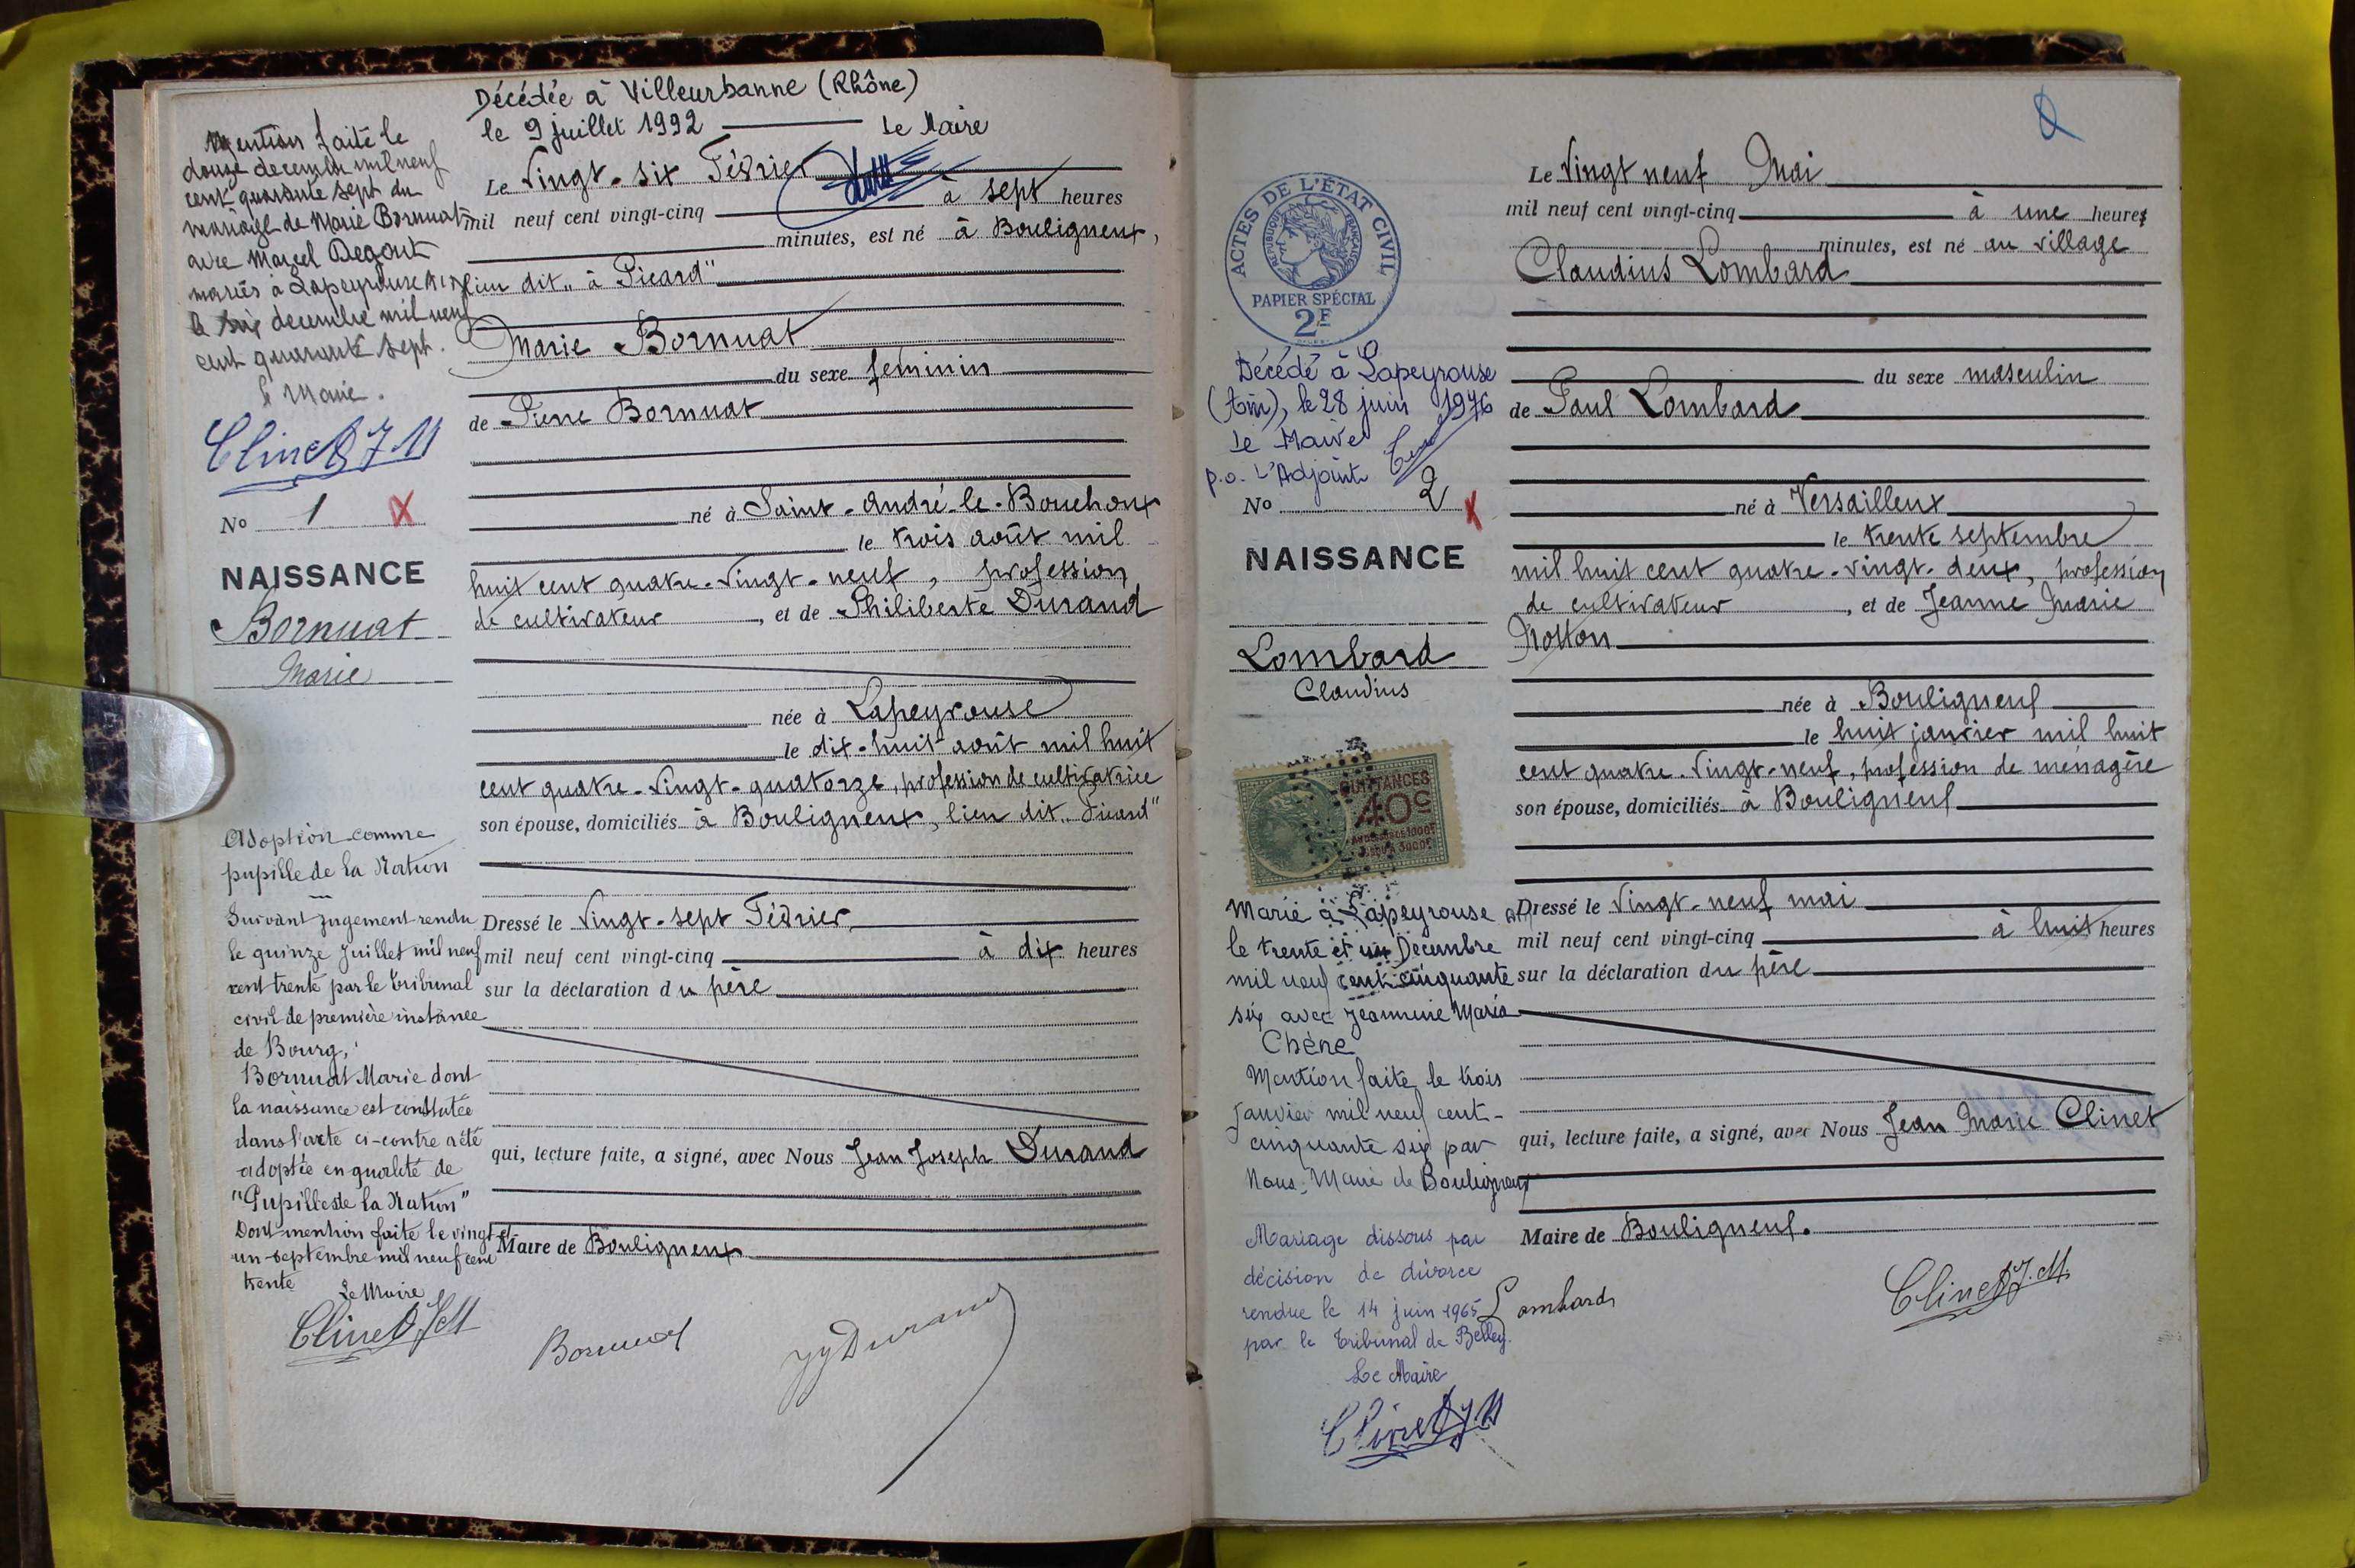 Décédée à Villeurbanne (Rhône)
le 9 juillet 1992 Le Maire
Mention faite le
douze decembre mil neuf
cent quarante sept du
mariage de Marie Bornuat
avec Marcel Degout
mariés à Lapeyrouse
le six decembre mil neuf
cent quarante sept.
le Maire.
Clinet J M
No 1
NAISSANCE
Bornuat
Marie
Adoption comme
pupille de la Nation
Suivant jugement rendu
le quinze Juillet mil neuf
cent trente par le tribunal
civil de première instance
de Bourg,
Bornuat Marie dont
la naissance est constatée
dans l'acte ci-contre a été
adoptée en qualité de
"Pupille de la Nation"
Dont mention faite le vingt et
un septembre mil neuf cent
trente
Le Maire
Clinet J M
Le Vingt-six Février
mil neuf cent vingt-cinq à sept heures
minutes, est né à Bouligneux,
lieu dit „ à Picard"
Marie Bornuat
du sexe féminin
de Pierre Bornuat
né à Saint-André-le-Bouchoux
le trois août mil
huit cent quatre-vingt-neuf, profession
de cultivateur, et de Philiberte Durand
née à Lapeyrouse
le dix-huit août mil huit
cent quatre-vingt-quatorze, profession de cultivatrice
son épouse, domiciliés à Bouligneux, lieu dit „ Picard"
Dressé le Vingt-sept Février
mil neuf cent vingt-cinq à dix heures
sur la déclaration du père
qui, lecture faite, a signé, avec Nous Jean Joseph Durand
Maire de Bouligneux
Bornuat JJ Durand
2
ACTES DE L'ÉTAT CIVIL
RÉPUBLIQUE FRANÇAISE
PAPIER SPÉCIAL
2F
Décédé à Lapeyrouse
(Ain), le 28 juin 1976
Le Maire
p.o. L'Adjoint
No 2
NAISSANCE
Lombard
Claudius
QUITTANCES
40c
Marié à Lapeyrouse
le trente et un Decembre
mil neuf cent cinquante
six avec Jeannine Maria
Chêne
Mention faite le trois
janvier mil neuf cent-
cinquante six par
Nous, Maire de Bouligneux
Mariage dissous par
décision de divorce
rendue le 14 juin 1965
par le tribunal de Belley.
Le Maire
Clinet J M
Le Vingt neuf Mai
mil neuf cent vingt-cinq à une heures
minutes, est né au village
Claudius Lombard
du sexe masculin
de Paul Lombard
né à Versailleux
le trente septembre
mil huit cent quatre-vingt-deux, profession
de cultivateur, et de Jeanne Marie
née à Bouligneux
le huit janvier mil huit
cent quatre-vingt-neuf, profession de ménagère
son épouse, domiciliés à Bouligneux
Dressé le Vingt-neuf mai
mil neuf cent vingt-cinq à huit heures
sur la déclaration du père
qui, lecture faite, a signé, avec Nous Jean Marie Clinet
Maire de Bouligneux.
Lombard Clinet J.M.